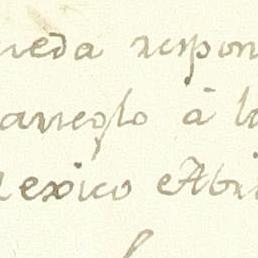 ueda respon
arreglo à la
Mexico Abri